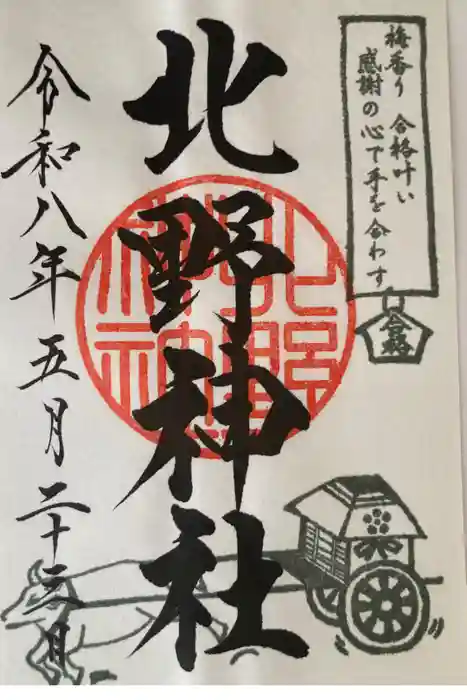 梅香り 合格叶い
感謝の心で手を合わす
合格
北野神社
令和八年五月二十三日